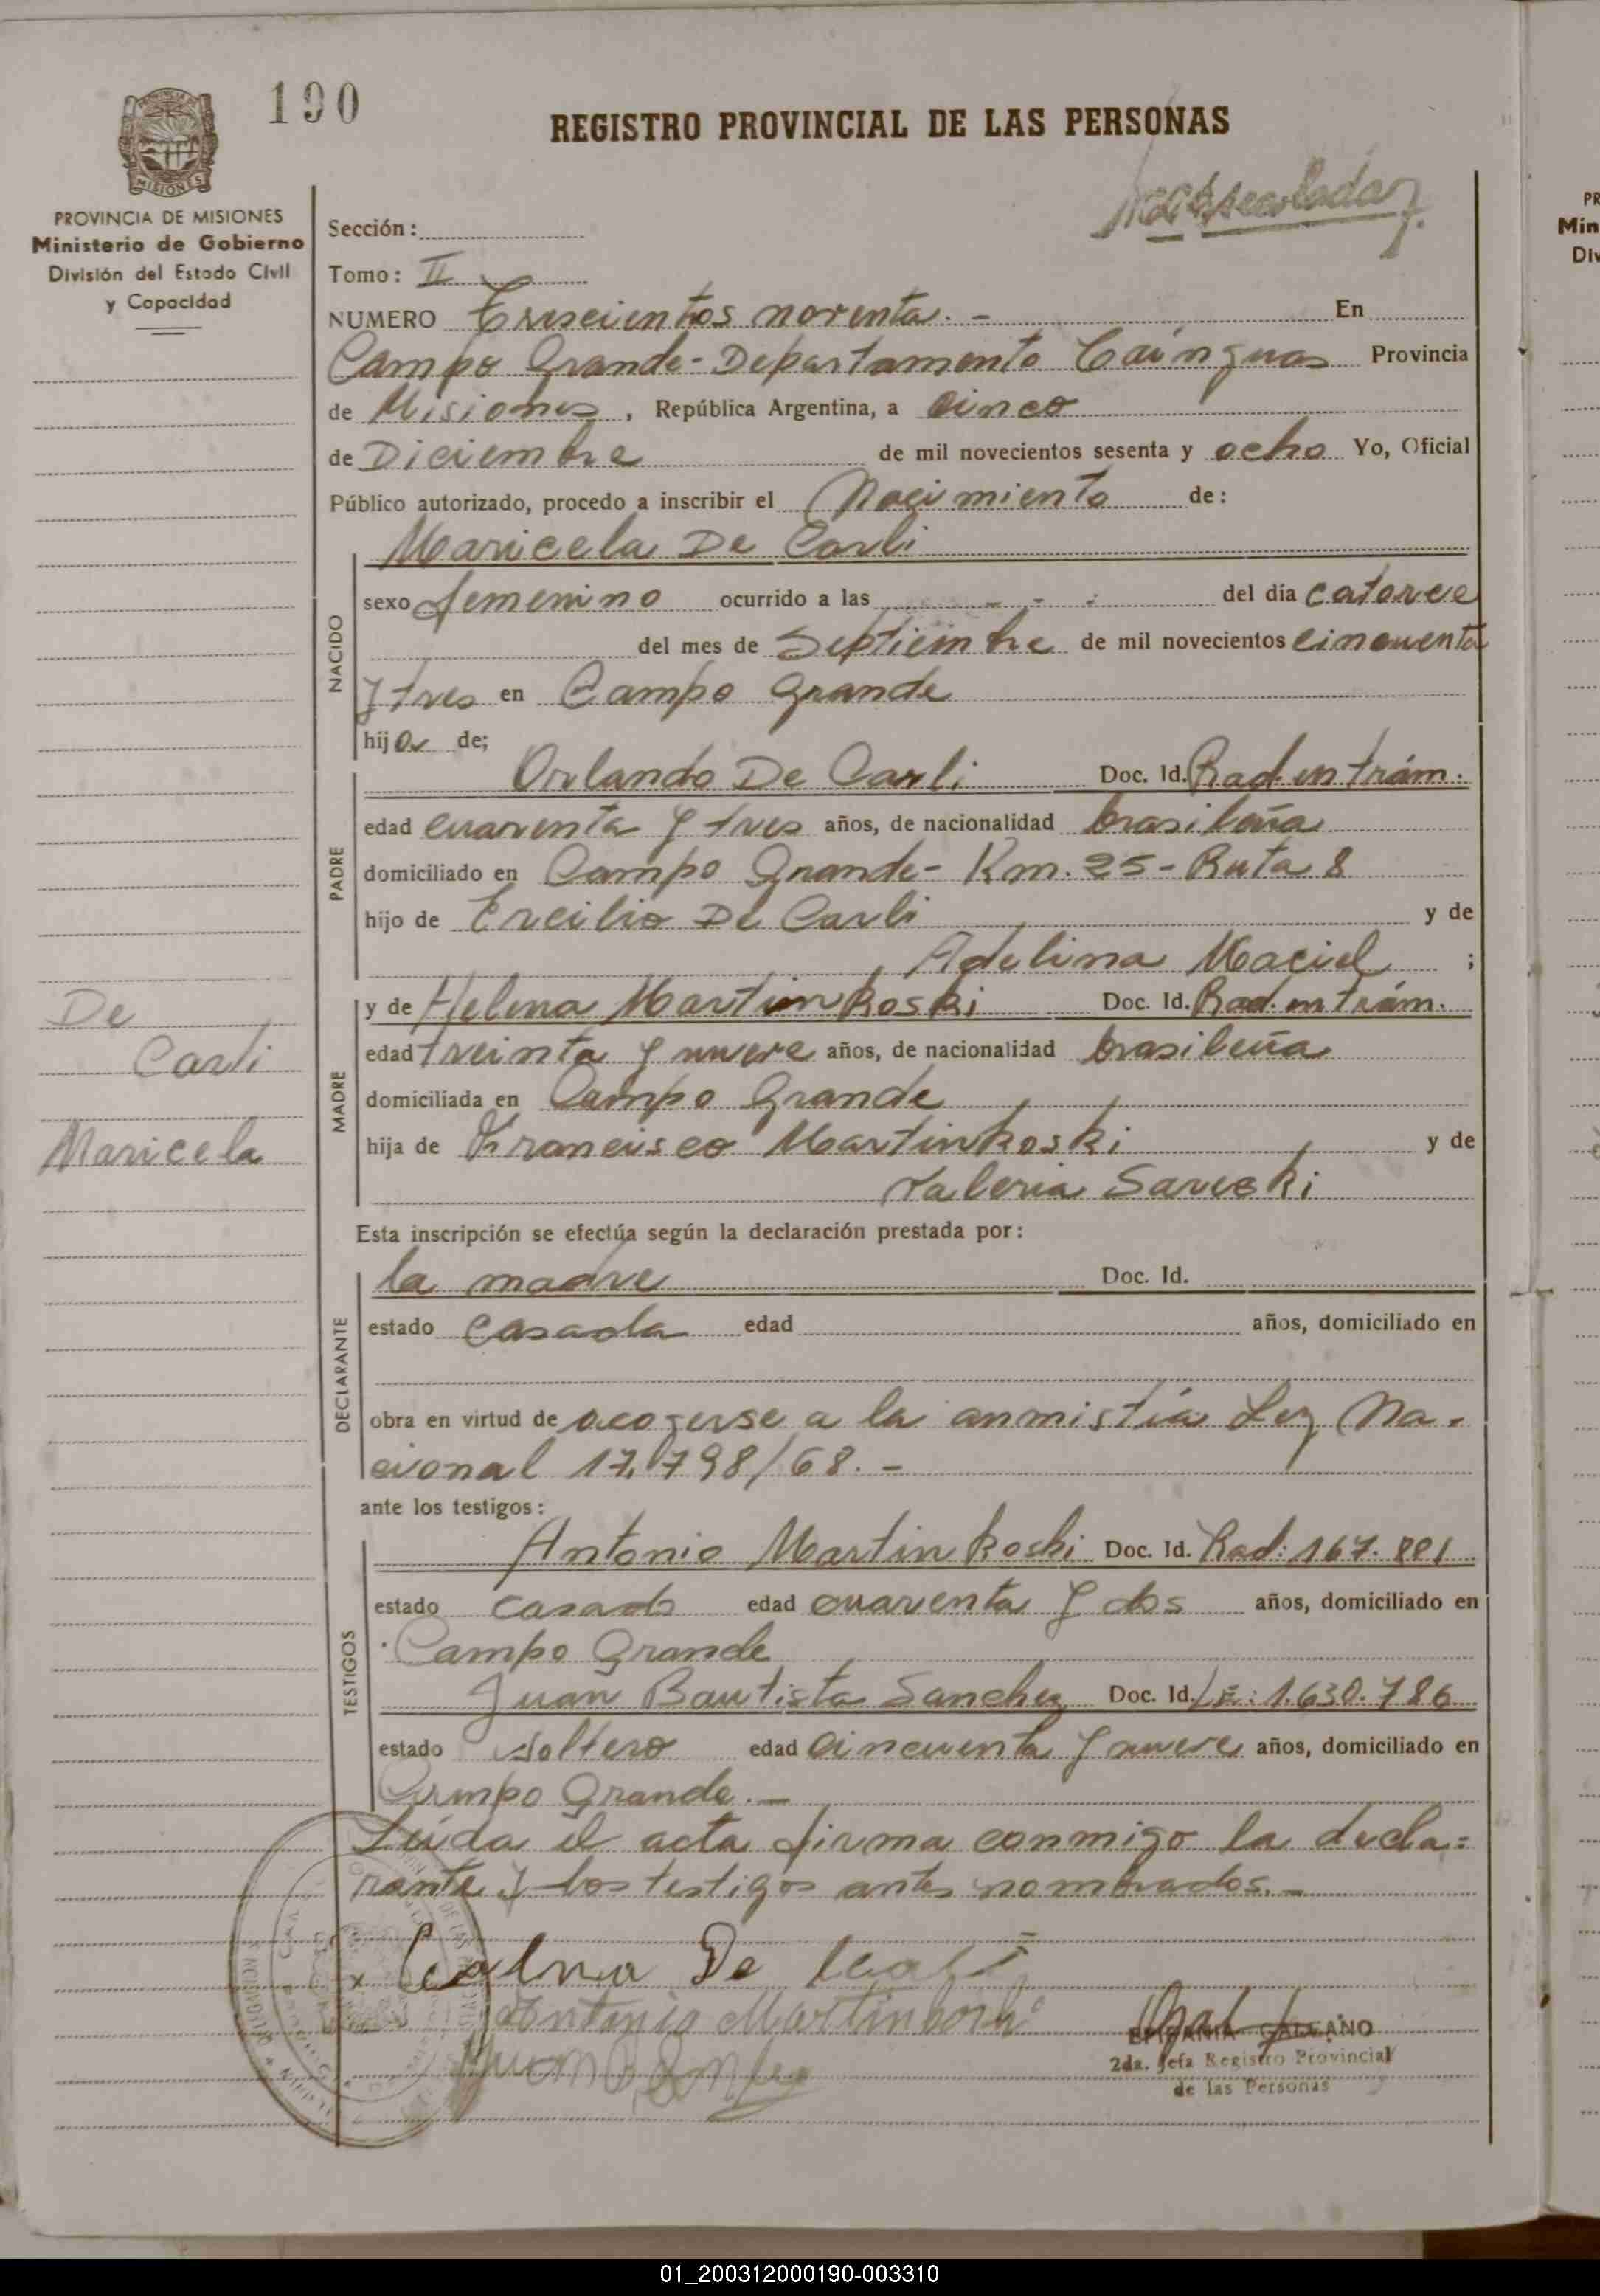 190
REGISTRO PROVINCIAL DE LAS PERSONAS
PROVINCIA DE MISIONES
MISIONES
PROVINCIA DE MISIONES
Ministerio de Gobierno
División del Estado Civil
y Capacidad
Sección:
Tomo: II
NUMERO Trescientos noventa. - En
Campo Grande - Departamento Cainguas Provincia
de Misiones, República Argentina, a cinco
de Diciembre de mil novecientos sesenta y ocho Yo, Oficial
Público autorizado, procedo a inscribir el Nacimiento de:
Maricela De Carli
NACIDO
sexo femenino ocurrido a las - - . del día catorce
del mes de Septiembre de mil novecientos cincuenta
y tres en Campo Grande
hija de;
PADRE
Orlando De Carli Doc. Id. Rad. en trám.
edad cuarenta y tres años, de nacionalidad brasileña
domiciliado en Campo Grande - Km. 25 - Ruta 8
hijo de Ercilio De Carli y de
Adelina Maciel ;
De
Carli
Maricela
MADRE
y de Helena Martinkoski Doc. Id. Rad. en trám.
edad treinta y nueve años, de nacionalidad brasileña
domiciliada en Campo Grande
hija de Francisco Martinkoski y de
Valeria
Esta inscripción se efectúa según la declaración prestada por:
DECLARANTE
la madre Doc. Id.
estado Casada edad años, domiciliado en
obra en virtud de acogerse a la anmistía Ley Na-
cional 17.798/68. -
ante los testigos:
TESTIGOS
Antonio Martinkoski Doc. Id. Rad: 167.881
estado casado edad cuarenta y dos años, domiciliado en
Campo Grande
Juan Bautista Sanchez Doc. Id. LE: 1.630.786
estado soltero edad cincuenta y nueve años, domiciliado en
Campo Grande. -
Leída el acta firma conmigo la decla=
rante y los testigos antes nombrados. -
x De
Antonio Martinkoski
EPIFANIA GALEANO
2da. Jefa Registro Provincial
de las Personas
PR
Min
Div
01_200312000190-003310